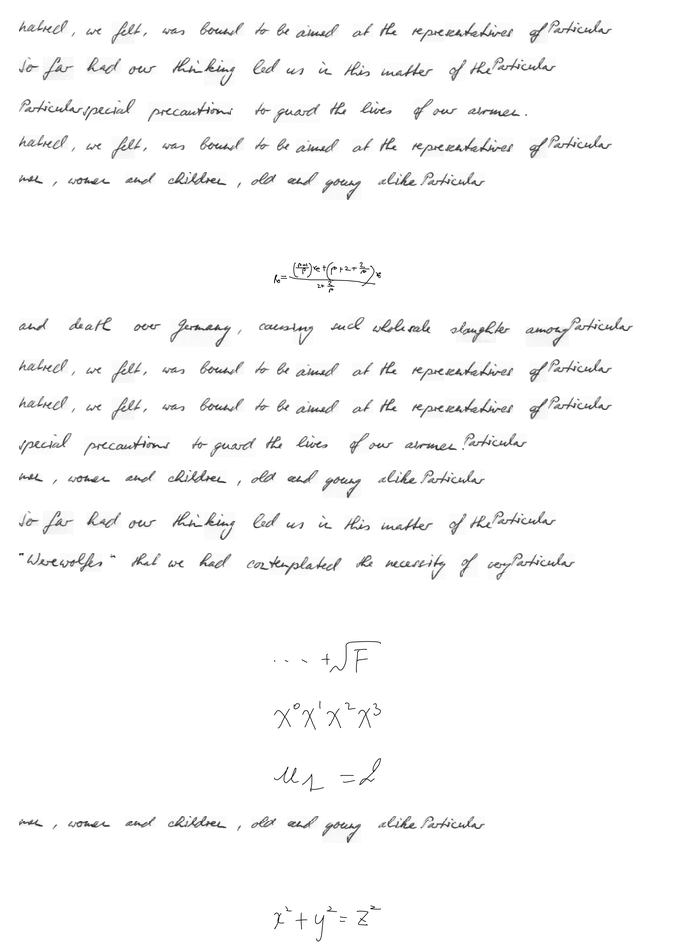 hatred, we felt, was bound to be aimed at the representatives of Particular
So far had our thinking led us in this matter of the Particular
Particular special precautions to guard the lives of our airmen.
hatred, we felt, was bound to be aimed at the representatives of Particular
men, women and children, old and young alike Particular
and death over Germany, causing such wholesale slaughter among Particular
hatred, we felt, was bound to be aimed at the representatives of Particular
hatred, we felt, was bound to be aimed at the representatives of Particular
special precautions to guard the lives of our airmen. Particular
men, women and children, old and young alike Particular
So far had our thinking led us in this matter of the Particular
"Werewolfes" that we had contemplated the necessity of very Particular
... + √F
x⁰x¹x²x³
= 2
men, women and children, old and young alike Particular
x² + y² = z²